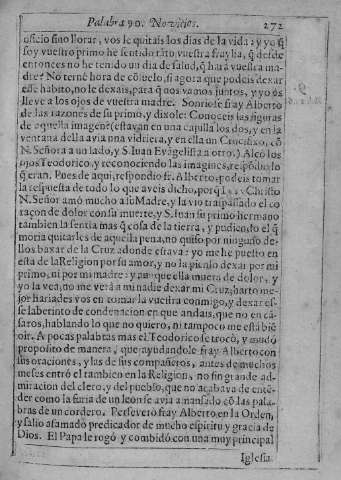 Palabra 90. Novicios. 272
oficio sino llorar, vos le quitais los dias de la vida: y yo q̃
soy vuestro primo he sentido tãto vuestra fraylia, q̃ desde
entonces no he tenido un dia de salud, q̃ hará vuestra ma-
dre? No terné hora de cõsuelo, si agora que podeis dexar
esse habito, no le dexais, para q̃ nos vamos juntos, y yo os
lleve a los ojos de vuestra madre. Sonriose fray Alberto
de las razones de su primo, y dixole: Conoceis las figuras
de aquella imagen? (estavan en una capilla los dos, y en la
ventana della avia una vidriera, y en ella un Crucifixo, cõ
N. Señora a un lado, y S. Iuan Evãgelista a otro.) Alçó los
ojos Teodorico, y reconociendo las imagines, respõdio lo
q̃ eran. Pues de aqui, respondio fr. Alberto, podeis tomar
la respuesta de todo lo que aveis dicho, porq̃ Christo
N. Señor amó mucho a su Madre, y la vio traspassado el co
raçon de dolor con su muerte, y S. Iuan su primo hermano
tambien la sentia mas q̃ cosa de la tierra, y pudiendo el q̃
moria quitarles de aquella pena, no quiso por ninguno de-
llos baxar de la Cruz adonde estava: yo me he puesto en
esta de la Religion por su amor, y no la pienso dexar por mi
primo, ni por mi madre: y aunque ella muera de dolor, y
yo la vea, no me verá a mi nadie dexar mi Cruz, harto me-
jor hariades vos en tomar la vuestra conmigo, y dexar es-
se laberinto de condenacion en que andais, que no en cã-
saros, hablando lo que no quiero, ni tampoco me está biẽ
oir. A pocas palabras mas el Teodorico se trocò, y mudó
proposito de manera, que ayudandole fray Alberto con
sus oraciones, y las de sus compañeros, antes de muchos
meses entró el tambien en la Religion, no sin grande ad-
miracion del clero, y del pueblo, que no acabava de entẽ-
der como la furia de un leon se avia amansado cõ las pala-
bras de un cordero. Perseveró fray Alberto en la Orden,
y salio afamado predicador de mucho espiritu y gracia de
Dios. El Papa le rogó y combidó con una muy principal
Iglesia.